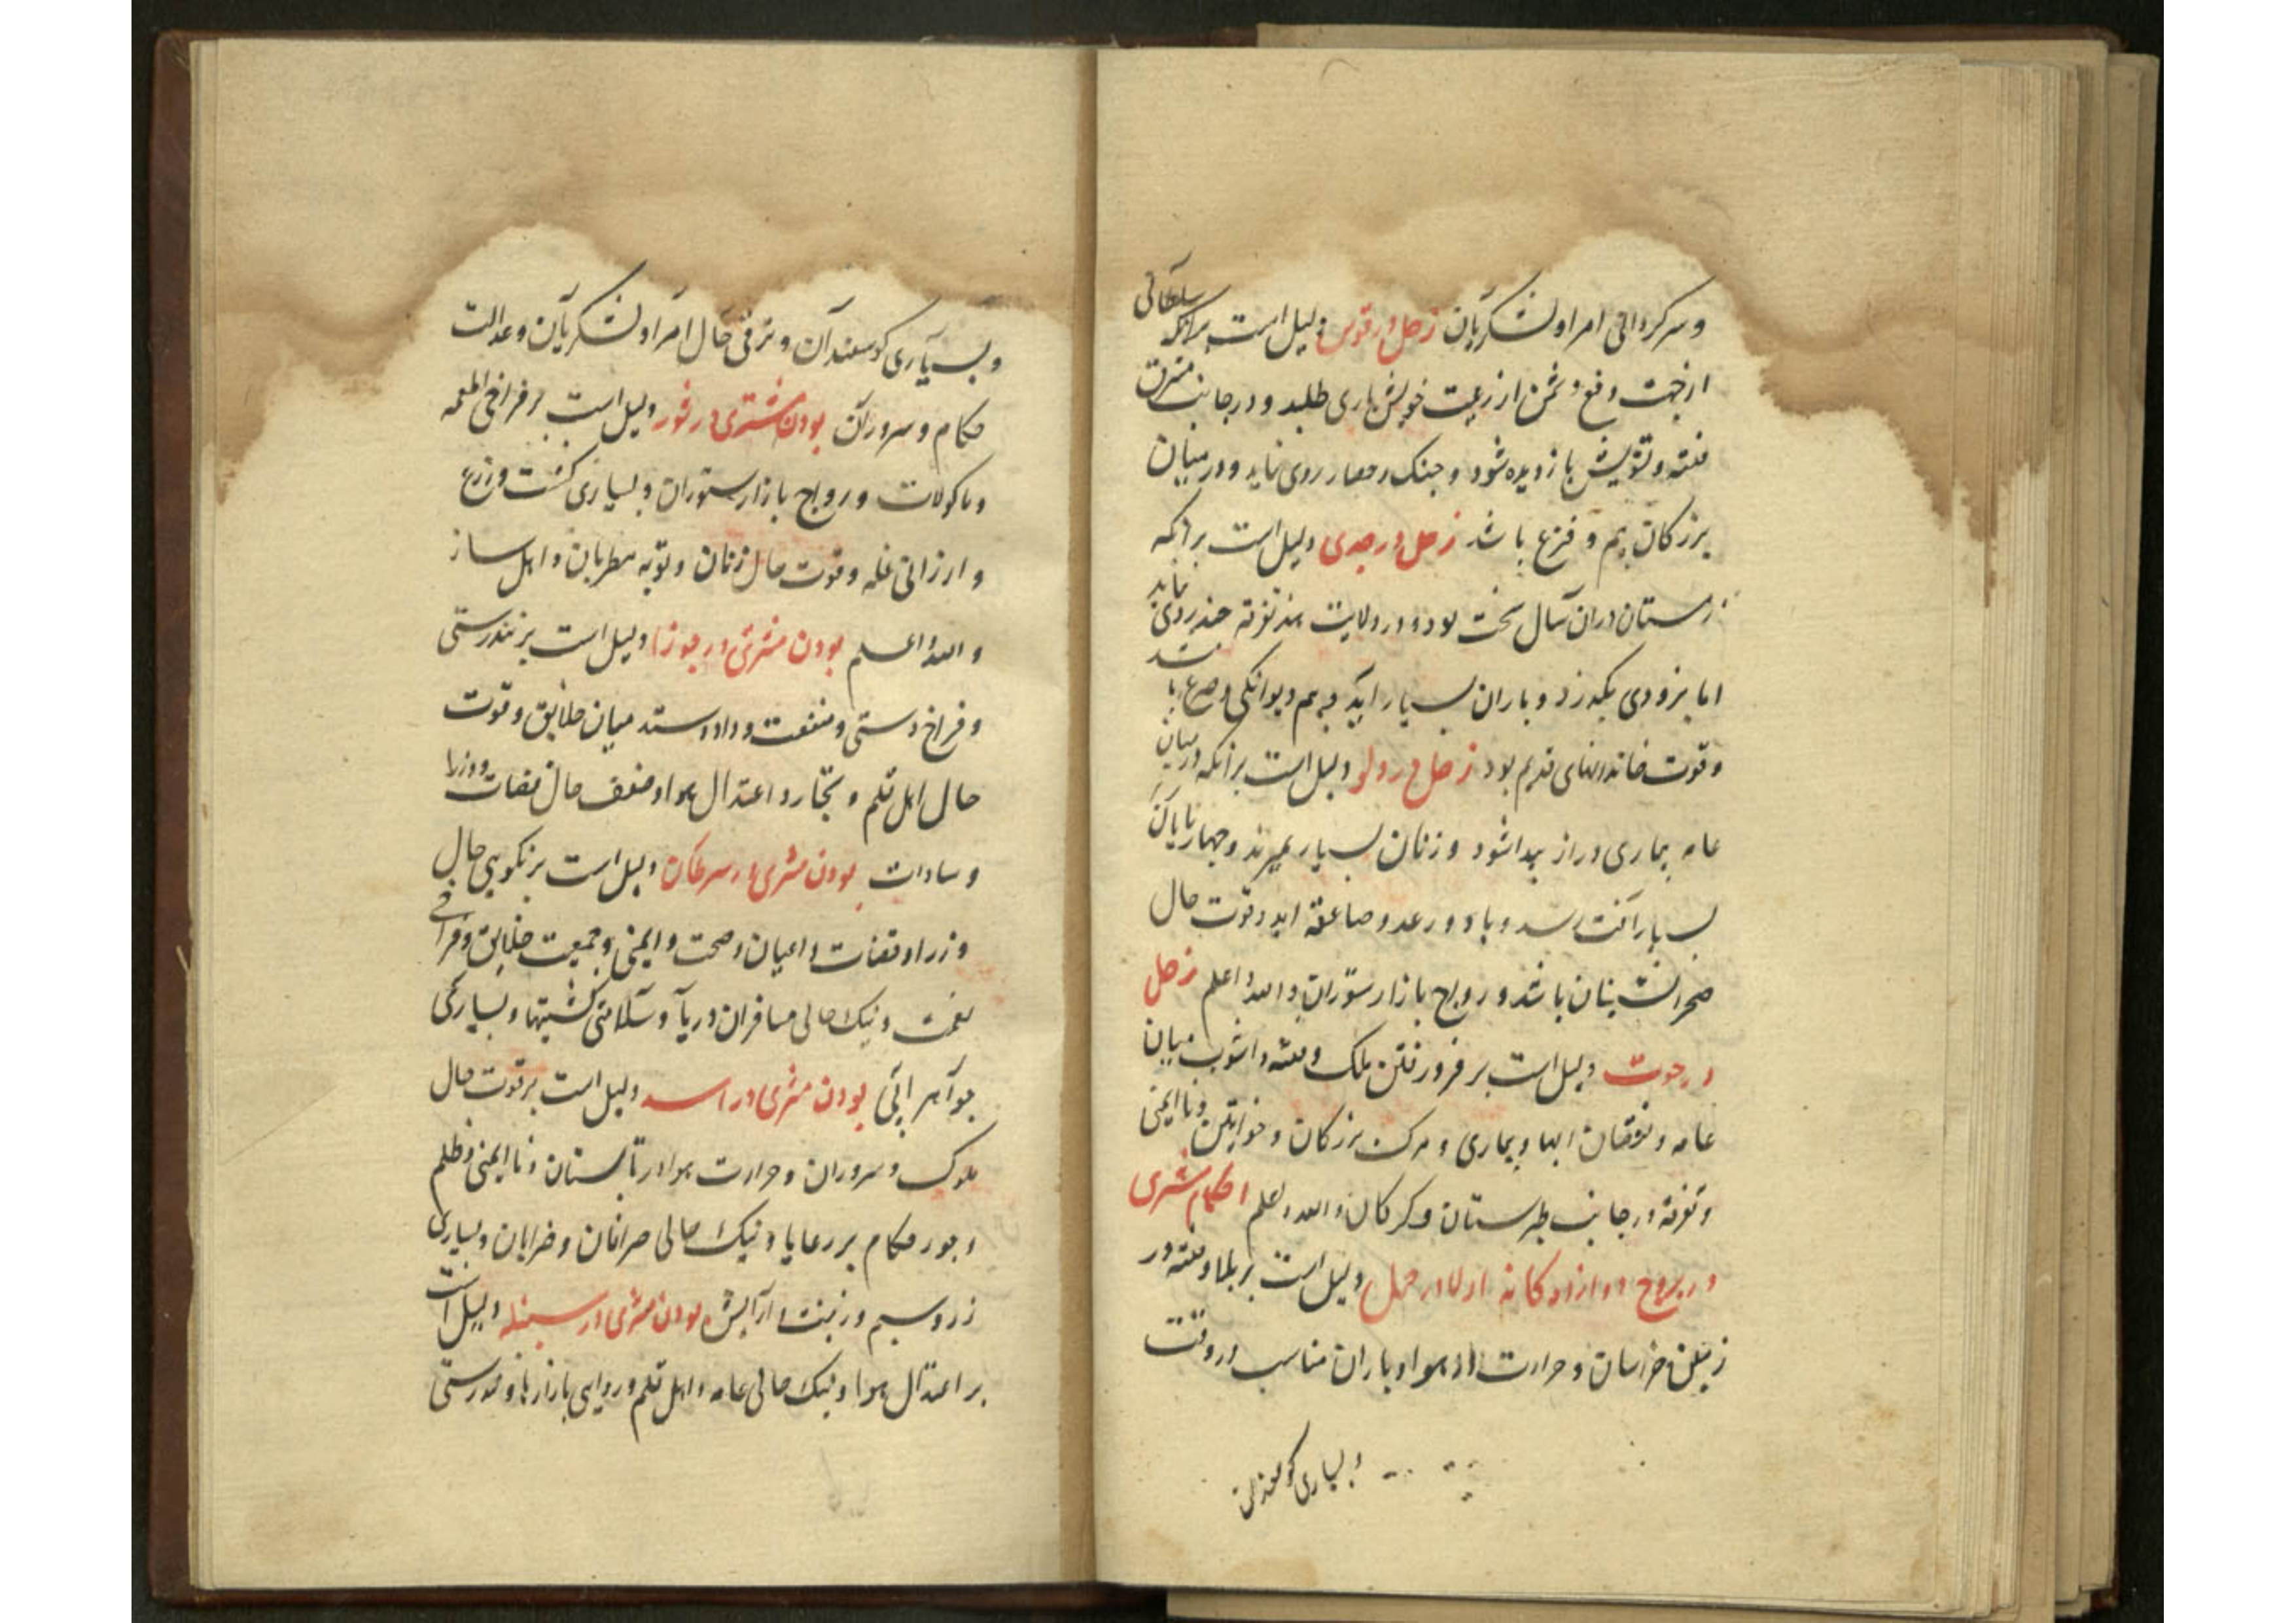 و سرکردانی امرا و لشکریان زحل در قوس دلیل است برانکه سلطانی
از جهت دفع دشمن از رعیت خویش یاری طلبد و در جانب مشرق
فتنه و تشویش بازدیده شود و جنک و حصار روی نماید و در میان
بزرکان بیم و فزع باشد زحل در جدی دلیل است برانکه
زمستان دران سال سخت بود و در ولایت هند تفرقه چند روی نماید
اما بزودی بکذرد و باران بسیار اید و بیم دیوانکی و صرع باشد
و قوت خاندانهای قدیم بود زحل در دلو دلیل است برانکه در میان
عامه بیماری دراز پیدا شود و زنان بسیار بمیرند و چهارپایان
بسیار آفت رسد و باد و رعد و صاعقه اید و قوت حال
صحرانشینان باشد و رواج بازار ستوران والله اعلم زحل
در حوت دلیل است بر فرو رفتن ملک و فتنه و اشوب میان
عامه و نقصان ابها و بیماری و مرک بزرکان و خواتین و ناایمنی
و تفرقه در جانب طبرستان و کرکان والله اعلم احکام مشتری
در بروج دوازده کانه اولا در حمل دلیل است بر بلا و فتنه در
زمین خراسان و حرارت هوا و باران مناسب در وقت
و بسیاری کوسفندان
و بسیاری کوسفندان و ترقی حال امرا و لشکریان و عدالت
حکام و سروران بودن مشتری در ثور دلیل است بر فراخی اطعمه
و ماکولات و رواج بازار ستوران و بسیاری کشت و زرع
و ارزانی غله و قوت حال زنان و توبه مطربان و اهل ساز
والله اعلم بودن مشتری در جوزا دلیل است بر تندرستی
و فراخ دستی و منفعت و داد و ستد میان خلایق و قوت
حال اهل قلم و تجار و اعتدال هوا و ضعف حال قضات و وزرا
و سادات بودن مشتری در سرطان دلیل است بر نکویی حال
وزرا و قضات و اعیان و صحت و ایمنی و جمعیت خلایق و فراخی
نعمت و نیک حالی مسافران دریا و سلامتی کشتیها و بسیاری
جواهر ابی بودن مشتری در اسد دلیل است بر قوت حال
ملوک و سروران و حرارت هوا در تابستان و ناایمنی و ظلم
و جور حکام بر رعایا و نیک حالی صرافان و ضرابان و بسیاری
زر و سیم و زینت و آرایش بودن مشتری در سنبله دلیل است
بر اعتدال هوا و نیک حالی عامه و اهل قلم و روایی بازارها و تندرستی